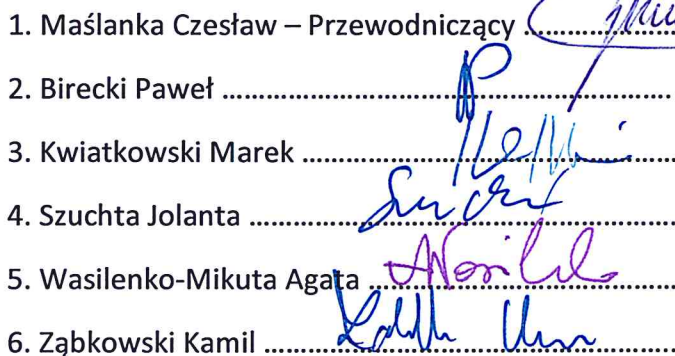 1. Maślanka Czesław – Przewodniczący ...............
2. Birecki Paweł .............................................
3. Kwiatkowski Marek .....................................
4. Szuchta Jolanta ..........................................
5. Wasilenko-Mikuta Agata ..............................
6. Ząbkowski Kamil .........................................